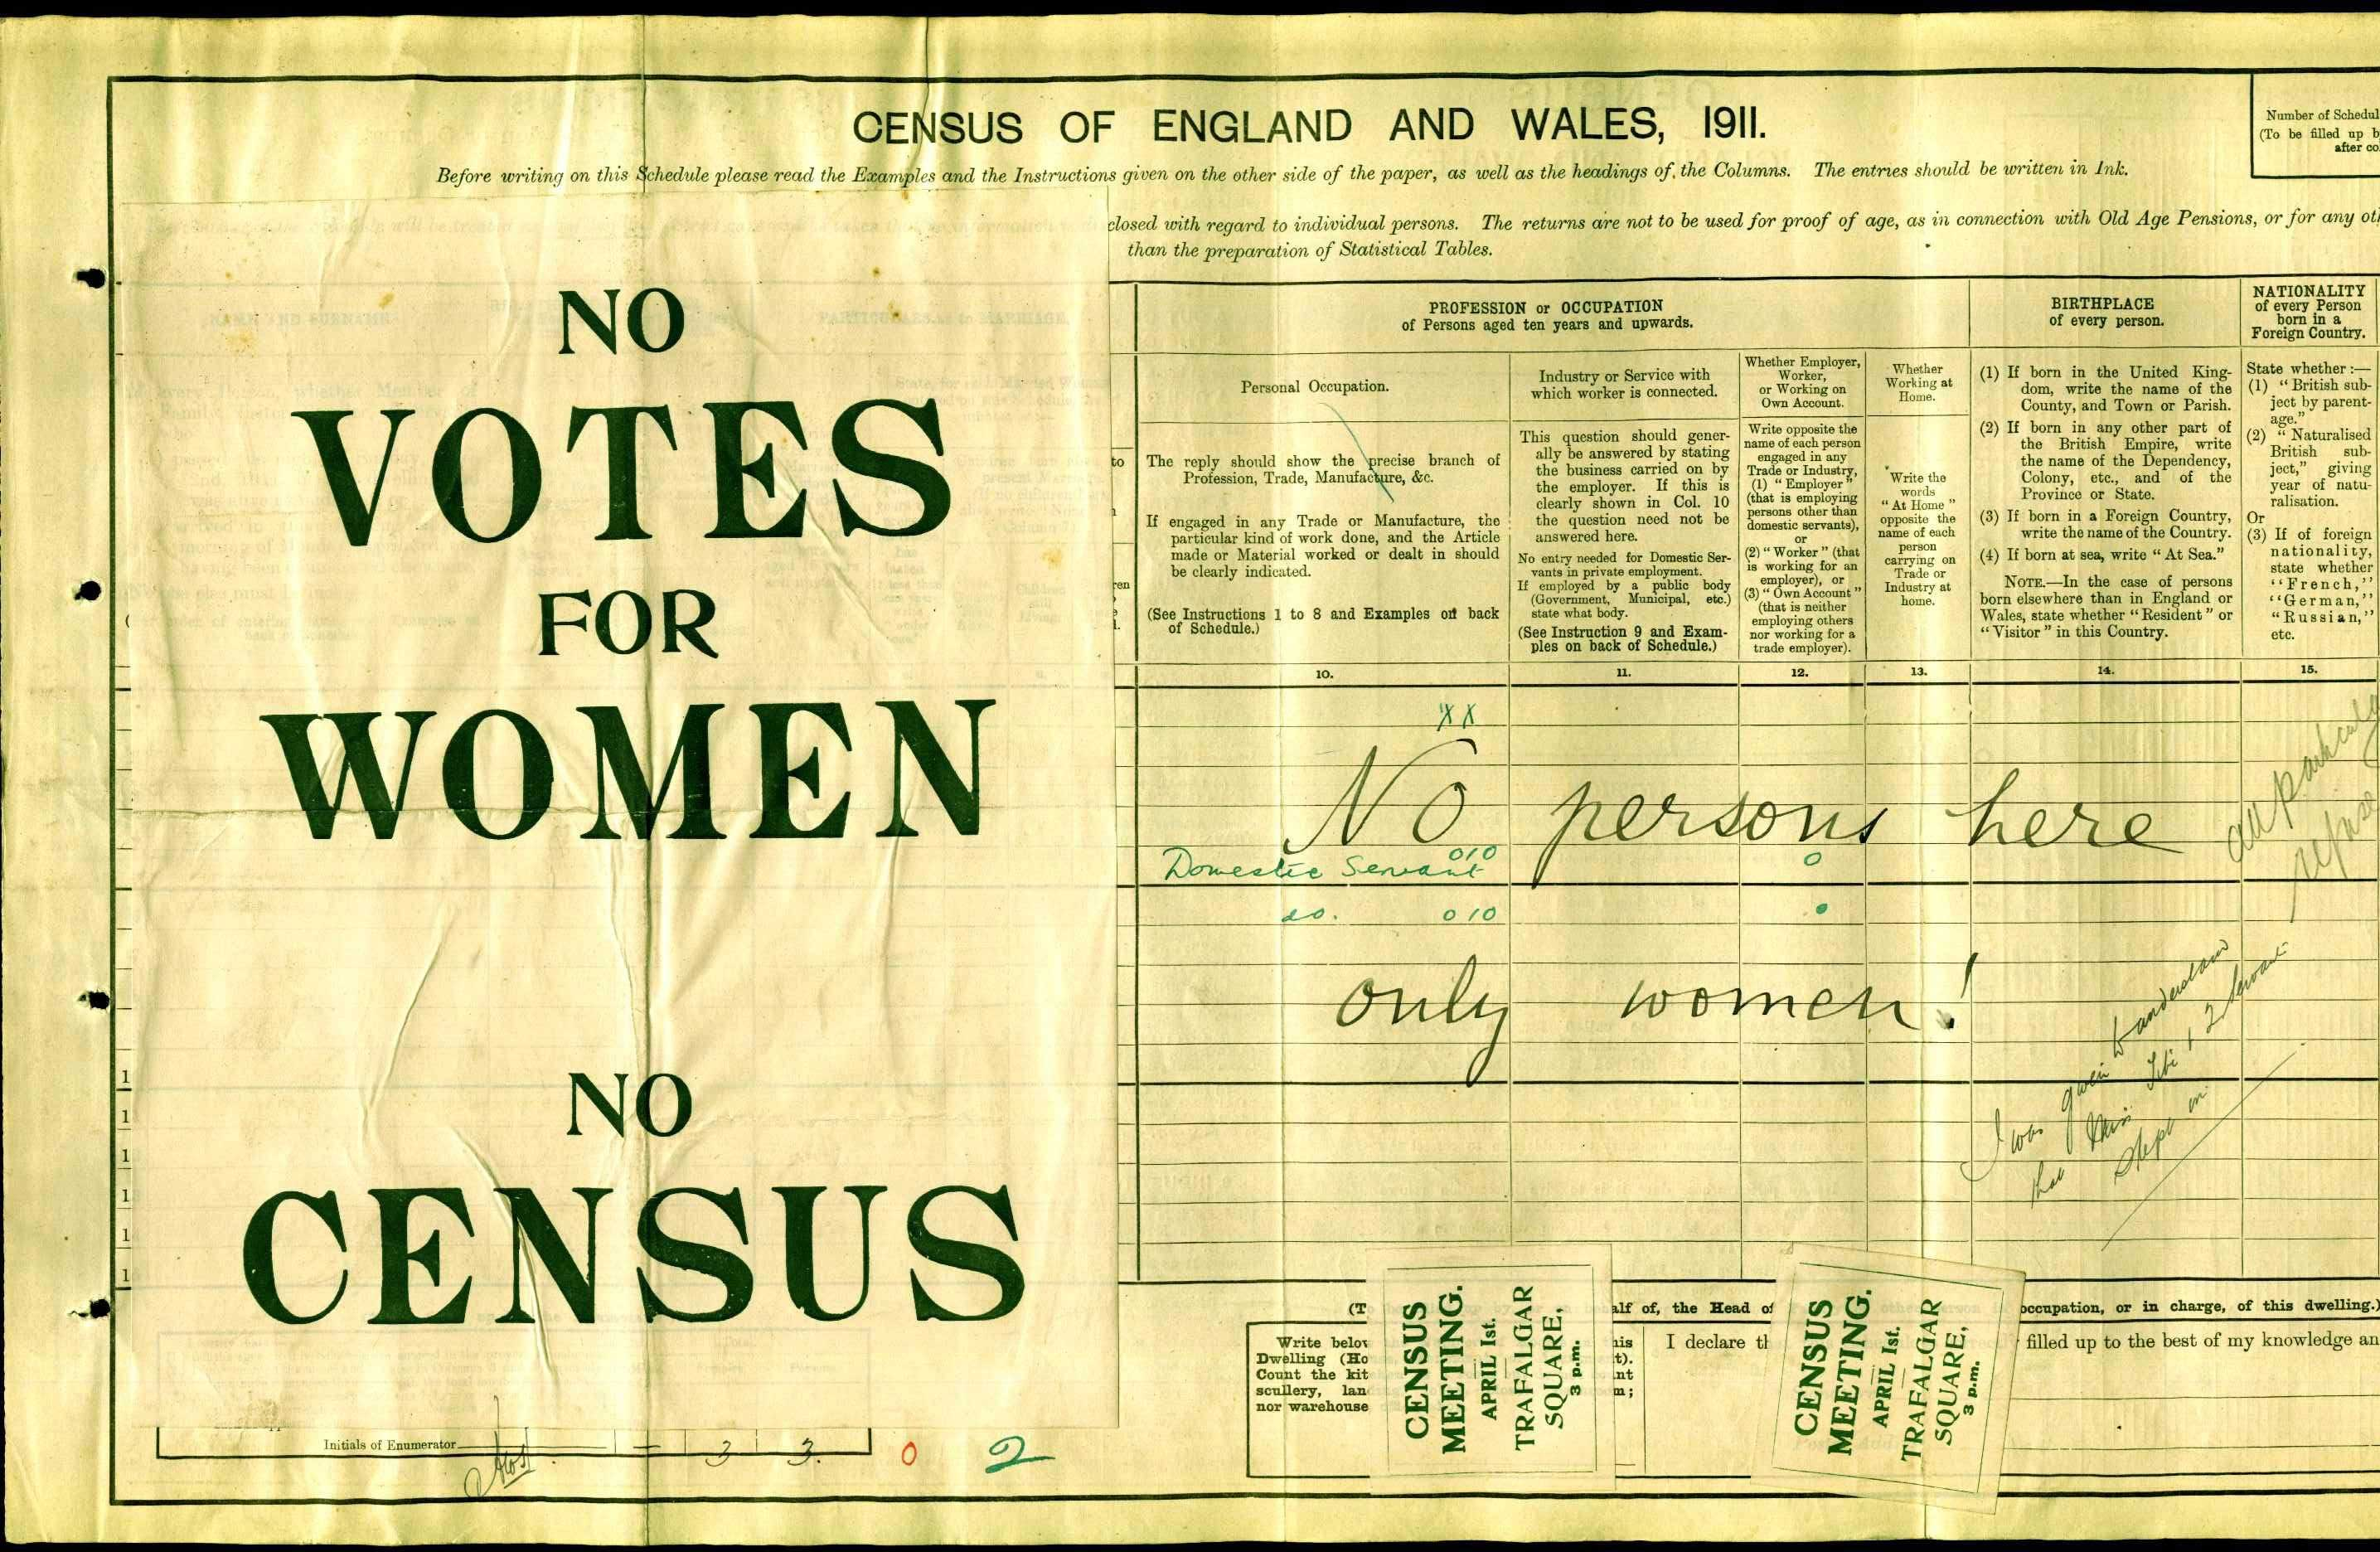 CENSUS OF ENGLAND AND WALES, 1911.
Number of Schedul
(To be filled up b
after co
Before writing on this Schedule please read the Examples and the Instructions given on the other side of the paper, as well as the headings of the Columns. The entries should be written in Ink.
closed with regard to individual persons. The returns are not to be used for proof of age, as in connection with Old Age Pensions, or for any ot
than the preparation of Statistical Tables.
NO
VOTES
FOR
WOMEN
NO
CENSUS
PROFESSION or OCCUPATION
of Persons aged ten years and upwards.
BIRTHPLACE
of every person.
NATIONALITY
of every Person
born in a
Foreign Country.
Personal Occupation.
The reply should show the precise branch of
Profession, Trade, Manufacture, &c.
If engaged in any Trade or Manufacture, the
particular kind of work done, and the Article
made or Material worked or dealt in should
be clearly indicated.
(See Instructions 1 to 8 and Examples on back
of Schedule.)
Industry or Service with
which worker is connected.
This question should gener-
ally be answered by stating
the business carried on by
the employer. If this is
clearly shown in Col. 10
the question need not be
answered here.
No entry needed for Domestic Ser-
vants in private employment.
If employed by a public body
(Government, Municipal, etc.)
state what body.
(See Instruction 9 and Exam-
ples on back of Schedule.)
Whether Employer,
Worker,
or Working on
Own Account.
Write opposite the
name of each person
engaged in any
Trade or Industry,
(1) "Employer"
(that is employing
persons other than
domestic servants),
or
(2) "Worker" (that
is working for an
employer), or
(3) "Own Account"
(that is neither
employing others
nor working for a
trade employer).
Whether
Working at
Home.
Write the
words
"At Home"
opposite the
name of each
person
carrying on
Trade or
Industry at
home.
(1) If born in the United King-
dom, write the name of the
County, and Town or Parish.
(2) If born in any other part of
the British Empire, write
the name of the Dependency,
Colony, etc., and of the
Province or State.
(3) If born in a Foreign Country,
write the name of the Country.
(4) If born at sea, write "At Sea."
NOTE.—In the case of persons
born elsewhere than in England or
Wales, state whether "Resident" or
"Visitor" in this Country.
State whether :—
(1) "British sub-
ject by parent-
age."
(2) "Naturalised
British sub-
ject," giving
year of natu-
ralisation.
Or
(3) If of foreign
nationality,
state whether
"French,"
"German,"
"Russian,"
etc.
10. 11. 12. 13. 14. 15.
XX
No persons here
Domestic Servant 010 0
do. 010
only women!
I was given to understand
that Miss & 2 Servants
slept in
(T
alf of, the Head of
occupation, or in charge, of this dwelling.)
Write below
Dwelling (Ho
Count the kit
scullery, lan
nor warehouse
his
t).
nt
m;
I declare th
filled up to the best of my knowledge an
CENSUS
MEETING.
APRIL 1st.
TRAFALGAR
SQUARE,
3 p.m.
CENSUS
MEETING.
APRIL 1st.
TRAFALGAR
SQUARE,
3 p.m.
Initials of Enumerator — 3 3. 0 2